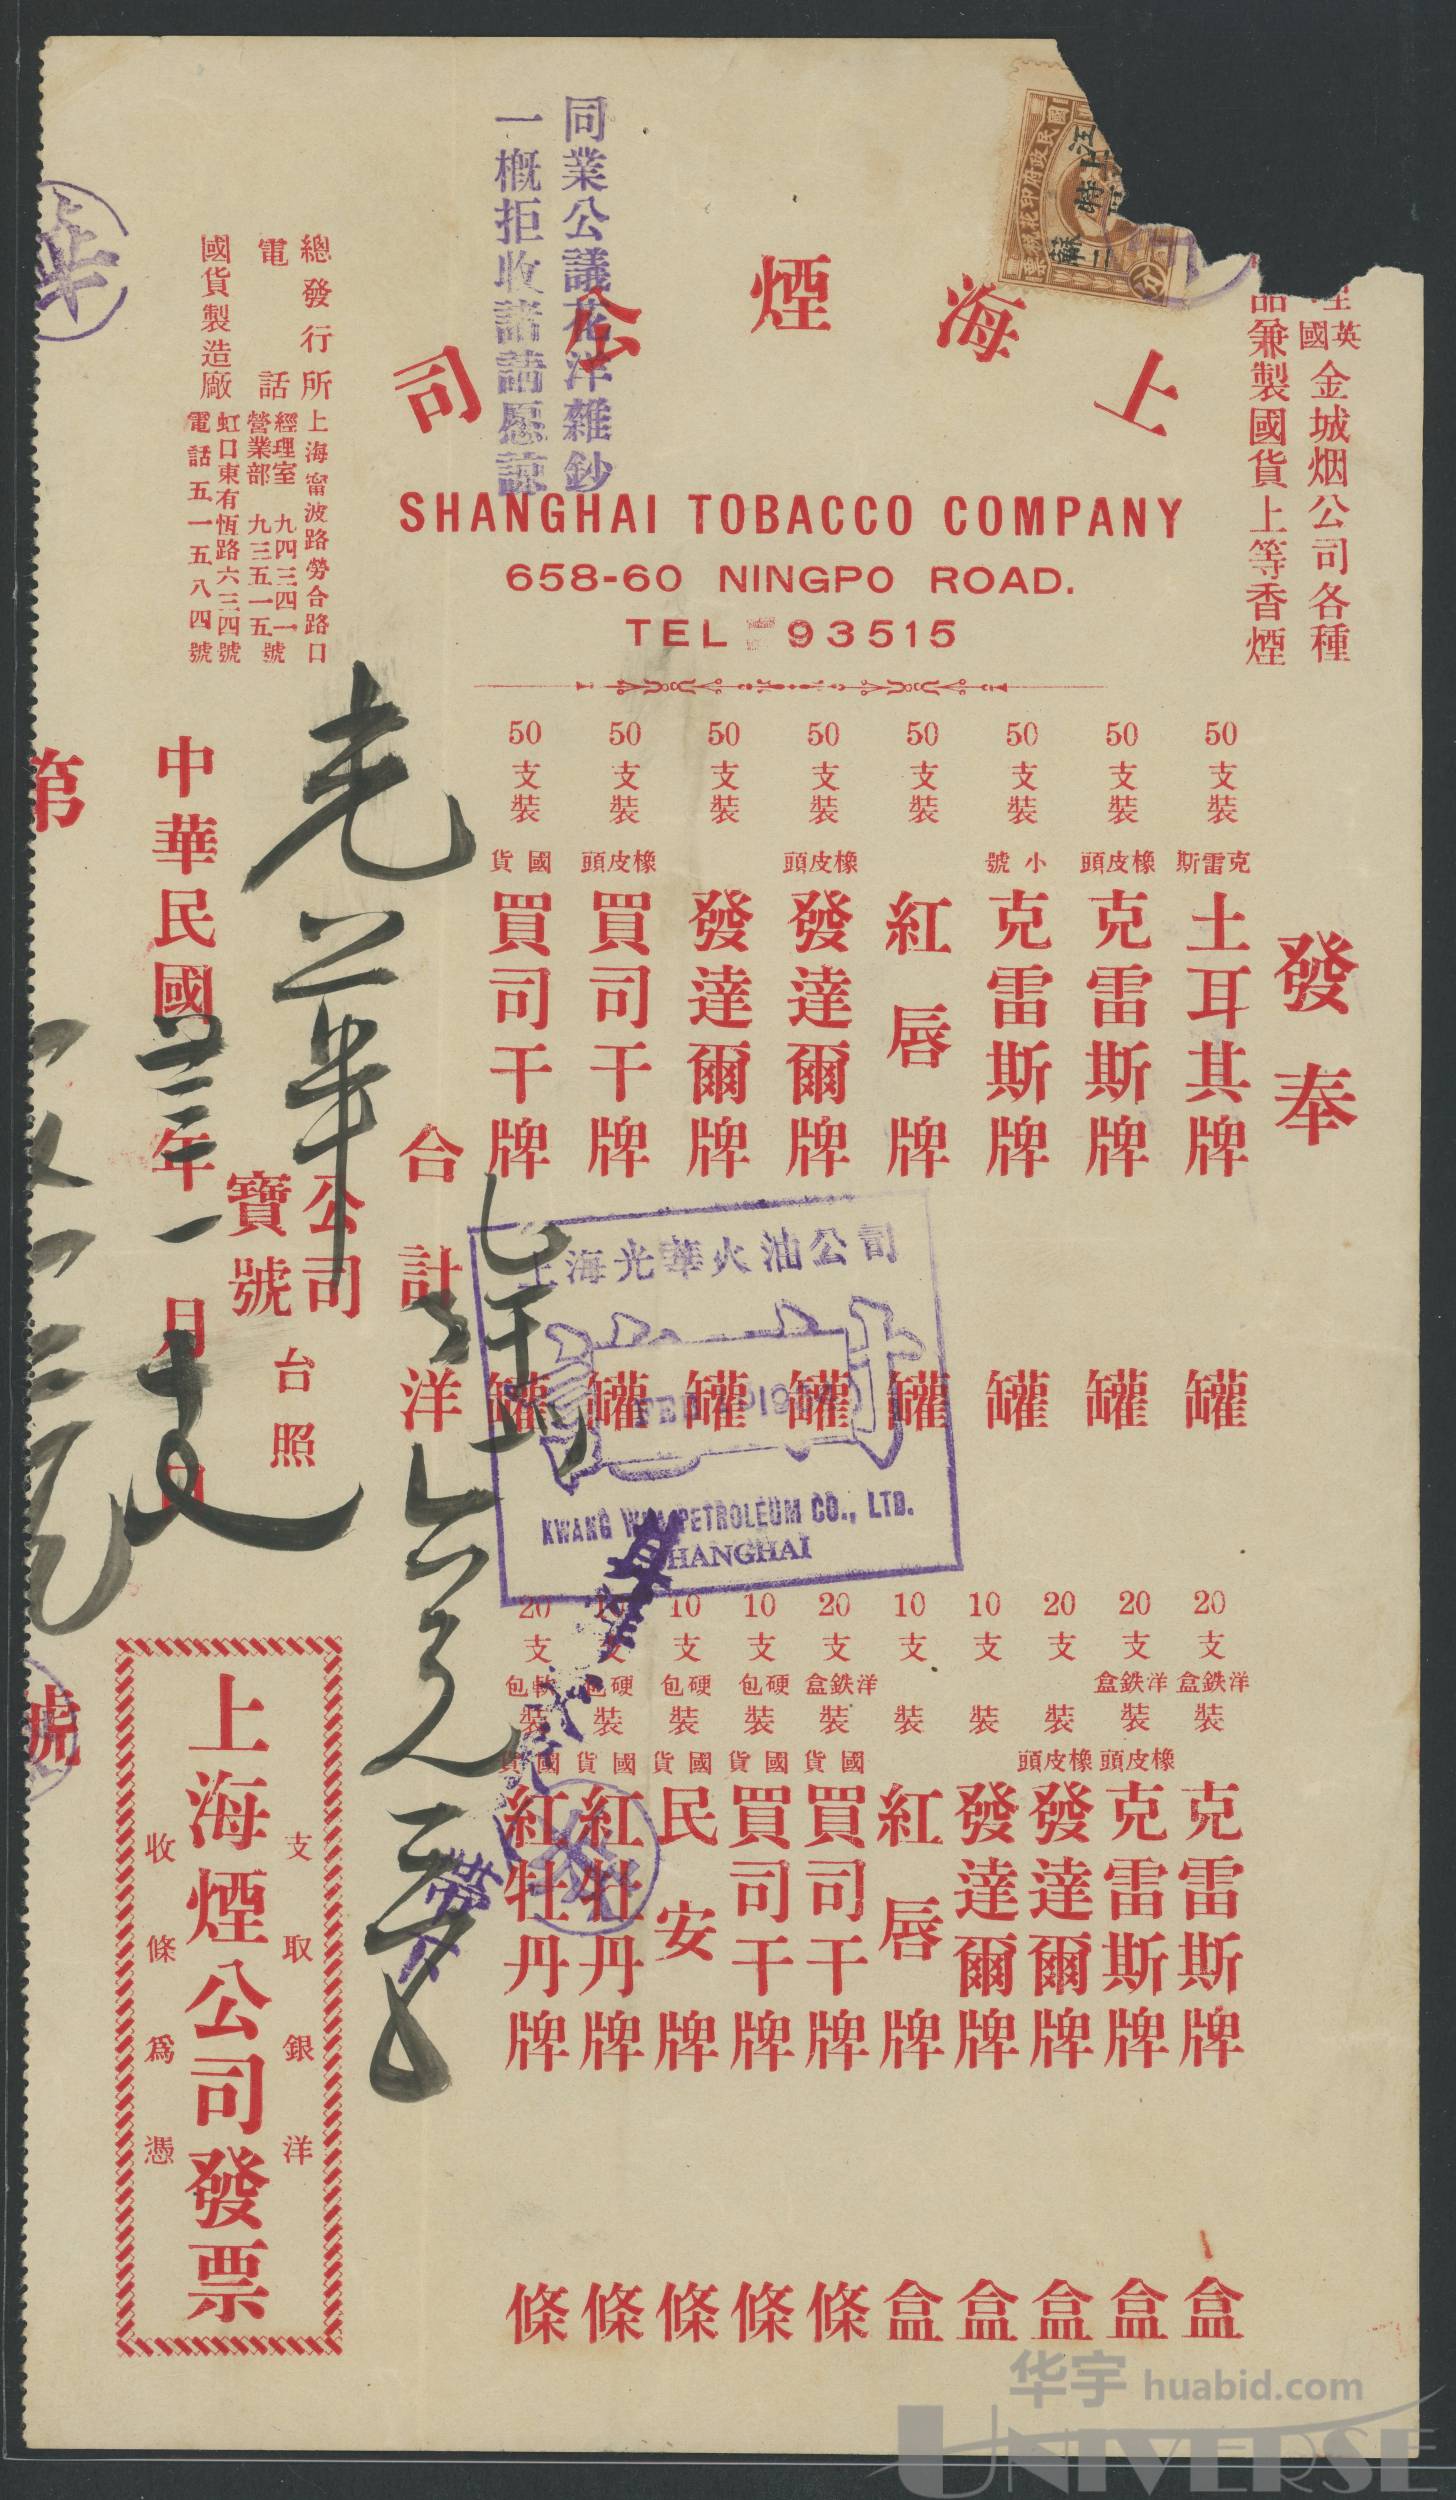 同業公議花洋雜鈔
一概拒收諸請愿諒
上海煙公司
SHANGHAI TOBACCO COMPANY
658-60 NINGPO ROAD.
TEL 93515
英國
金城烟公司各種
品兼製國貨上等香煙
國民政府印花稅票
江蘇
上海特
二
分
總發行所 上海甯波路勞合路口
電話 經理室 九四三四一號
營業部 九三五一五號
國貨製造廠 虹口東有恆路六三四號
電話五一五八四號
發奉
50支裝 克雷斯 土耳其牌 罐
50支裝 橡皮頭 克雷斯牌 罐
50支裝 小號 克雷斯牌 罐
50支裝 紅唇牌 罐
50支裝 橡皮頭 發達爾牌 罐
50支裝 發達爾牌 罐
50支裝 橡皮頭 買司干牌 罐
50支裝 國貨 買司干牌 罐
20支洋鉄盒裝 克雷斯牌 盒
20支洋鉄盒裝 橡皮頭 克雷斯牌 盒
20支裝 橡皮頭 發達爾牌 盒
10支裝 發達爾牌 盒
10支裝 紅唇牌 盒
20支洋鉄盒裝 國貨 買司干牌 條
10支硬包裝 國貨 買司干牌 條
10支硬包裝 國貨 民安牌 條
10支硬包裝 國貨 紅牡丹牌 條
20支軟包裝 國貨 紅牡丹牌 條
上海光華火油公司
KWANG WHA PETROLEUM CO., LTD.
SHANGHAI
合計洋
光華
公司
寶號
台照
中華民國 年一月 日
第 號
華
支取銀洋
上海煙公司發票
收條為憑
华宇 huabid.com
UNIVERSE